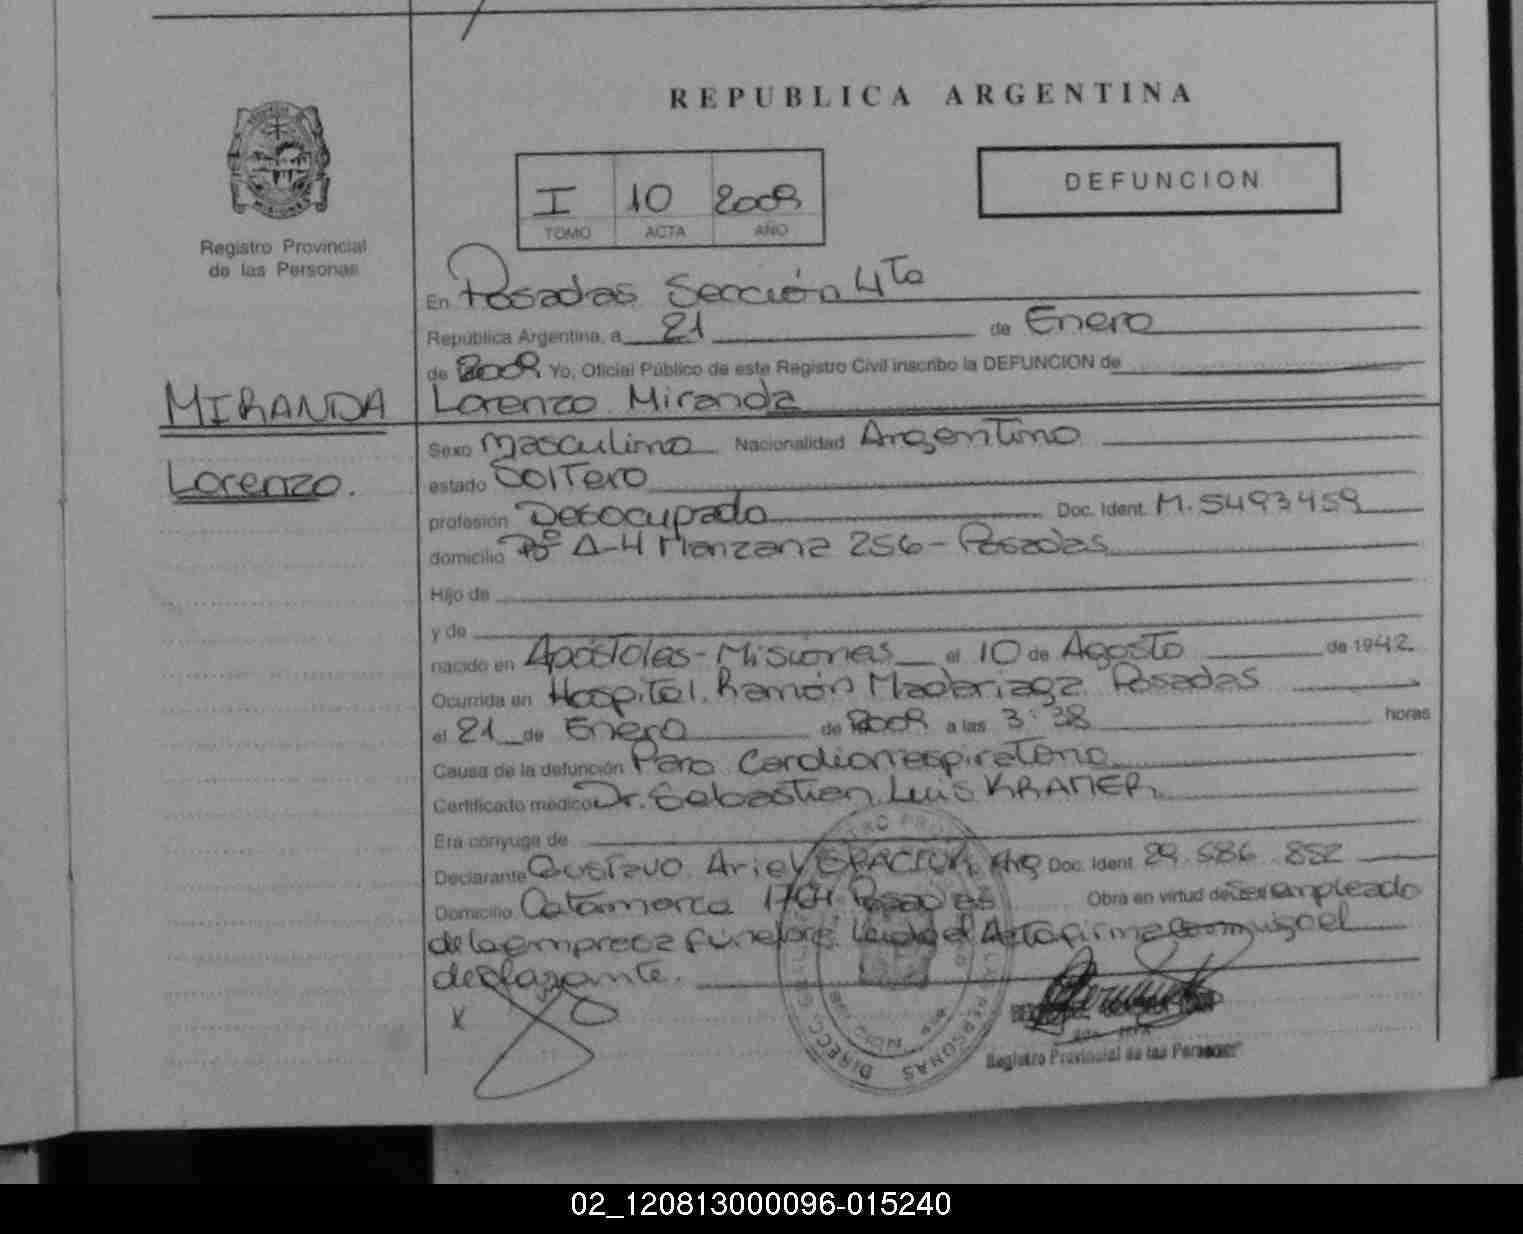 REPUBLICA ARGENTINA
DEFUNCION
I 10 2009
TOMO ACTA AÑO
Registro Provincial
de las Personas
En Posadas Sección 4ta
República Argentina, a 21 de Enero
de 2009 Yo, Oficial Público de este Registro Civil inscribo la DEFUNCION de
MIRANDA
Lorenzo Miranda
Sexo Masculino Nacionalidad Argentino
Lorenzo.
estado Soltero
profesión Desocupado Doc. Ident. M. 5493459
domicilio Bº A-4 Manzana 256 - Posadas
Hijo de
y de
nacido en Apóstoles - Misiones el 10 de Agosto de 1942
Ocurrida en Hospital. Ramón Madariaga Posadas
el 21 de Enero de 2009 a las 3:38 horas
Causa de la defunción Paro Cardiorrespiratorio
Certificado médico Dr. Sebastian Luis KRAMER
Era cónyuge de
Declarante Gustavo Ariel Doc. Ident. 29.586.852
Domicilio Catamarca Posadas Obra en virtud de Ser empleado
de la empresa funebre. Leida el Acta firma conmigo el
declarante.
x
Registro Provincial de las Personas
02_120813000096-015240